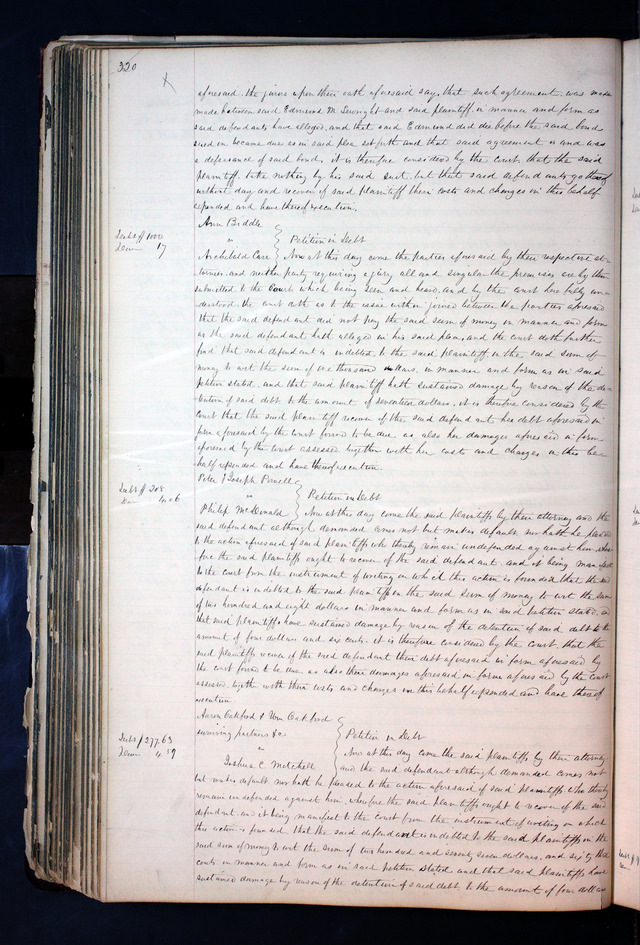 320
aforesaid, the jurors upon their oath aforesaid say, that such agreement was made
made between said Edmund M. and said plaintiff in manner and form as
said defendants have alleged, and that said Edmund did die before the said bond
sued on became due as in said plea set forth and that said agreement is and was
a defeasance of said bond, it is therefore considered by the court that the said
plaintiff take nothing by his said suit, but that said defendants go thereof
without day and recover of said plaintiff their costs and charges in this behalf
expended and have thereof execution.
Ann Biddle
Debt $1000
Dam 17
vs
Petition in Debt
Archibald Carr
Now at this day come the parties aforesaid by their respective at-
tornies, and neither party requiring a jury all and singular the premises are by them
submitted to the Court which being seen and heard, and by the court here fully un-
derstood the court doth as to the issue within joined between the parties aforesaid
that the said defendant did not pay the said sum of money in manner and form
as the said defendant hath alleged in his said plea, and the court doth further
find that said defendant is indebted to the said plaintiff in the said sum of
money to wit the sum of one thousand dollars, in manner and form as in said
petition stated, and that said plaintiff hath sustained damage by reason of the de-
tention of said debt to the amount of seventeen dollars, it is therefore considered by the
court that the said plaintiff recover of the said defendant her debt aforesaid in
form aforesaid by the court found to be due as also her damages aforesaid in form
aforesaid by the court assessed together with her costs and charges in this be-
half expended and have thereof execution.
Peter & Joseph Powell
Debt $208
Dam 4.06
vs
Petition in Debt
Philip McDonald
Now at this day come the said plaintiffs by their attorney and the
said defendant although demanded comes not but makes default nor hath he pleaded
to the action aforesaid of said plaintiffs who thereby remain undefended against him where-
fore the said plaintiffs ought to recover of the said defendant, and it being manifest
to the court from the instrument of writing on which this action is founded that the said
defendant is indebted to the said plaintiffs in the said sum of money to wit the sum
of two hundred and eight dollars in manner and form as in said petition stated, and
that said plaintiffs have sustained damage by reason of the detention of said debt to the
amount of four dollars and six cents. it is therefore considered by the court that the
said plaintiffs recover of the said defendant their debt aforesaid in form aforesaid by
the court found to be due as also their damages aforesaid in form aforesaid by the court
assessed, together with their costs and charges in this behalf expended and have thereof
execution
Aaron Oakford & Wm Oakford
surviving partners &c
Debt $277.63
Dam 4.19
vs
Petition in Debt
Joshua C. Mitchell
Now at this day come the said plaintiffs by their attorney
and the said defendant although demanded comes not
but makes default nor hath he pleaded to the action aforesaid of said plaintiffs who thereby
remain undefended against him, wherefore the said plaintiffs ought to recover of the said
defendant, and it being manifest to the court from the instrument of writing on which
this action is founded that the said defendant is indebted to the said plaintiffs in the
said sum of money to wit the sum of two hundred and seventy seven dollars, and sixty three
cents in manner and form as in said petition stated and that said plaintiffs have
sustained damage by reason of the detention of said debt to the amount of four dollars